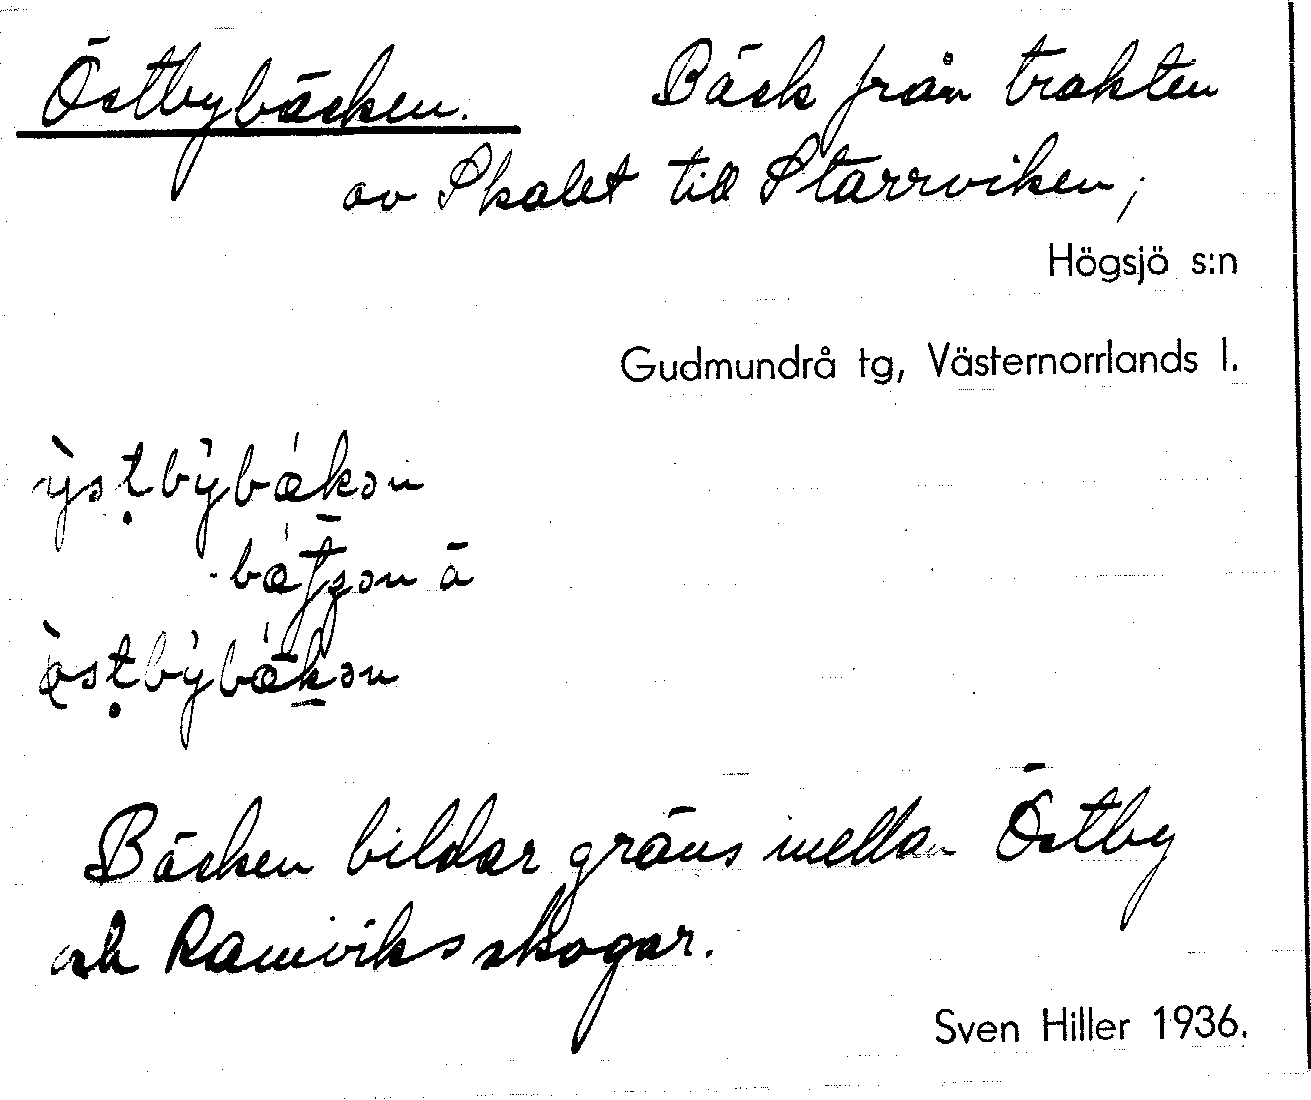 Östbybäcken. Bäck från trakten
av Skalet till Starrviken,
Högsjö s:n
Gudmundrå tg, Västernorrlands l.
Bäcken bildar gräns mellan Östby
och Ramviks skogar.
Sven Hiller 1936.